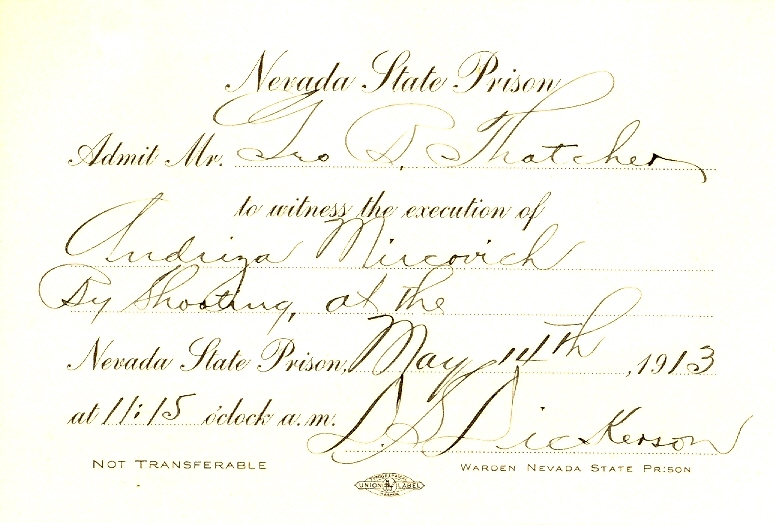 Nevada State Prison
Admit Mr. Geo B. Thatcher
to witness the execution of
Andriza Mircovich
By Shooting, at the
Nevada State Prison, May 14th, 1913
at 11:15 o'clock a.m. D.S. Dickerson
NOT TRANSFERABLE
WARDEN NEVADA STATE PRISON
UNION LABEL